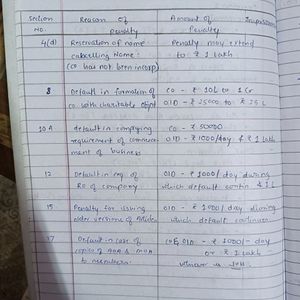 Section Reason of Amount of Imprisonm
No. Penalty Penalty
4(d) Reservation of name Penalty may extend
cancelling Name: to ₹ 1 Lakh
(co has not been incorp)
8 Default in formation of CO - ₹ 10L to 1 Cr
co. with charitable object OID - ₹ 25000 to ₹ 25 L
10A default in complying CO - ₹ 50000
requirement of commence OID - ₹ 1000/day & ₹ 1 Lakh
ment of business
12 Default in req of OID - ₹ 1000/ day during
RO of company which default contin & 1 L
15 Penalty for issuing OID - ₹ 1000/ day during
older versions of Articles which default continues
17 Default in case of CO & OID - ₹ 1000/- day
copies of AOA & MOA or ₹ 1 lakh
to members. whichever is low